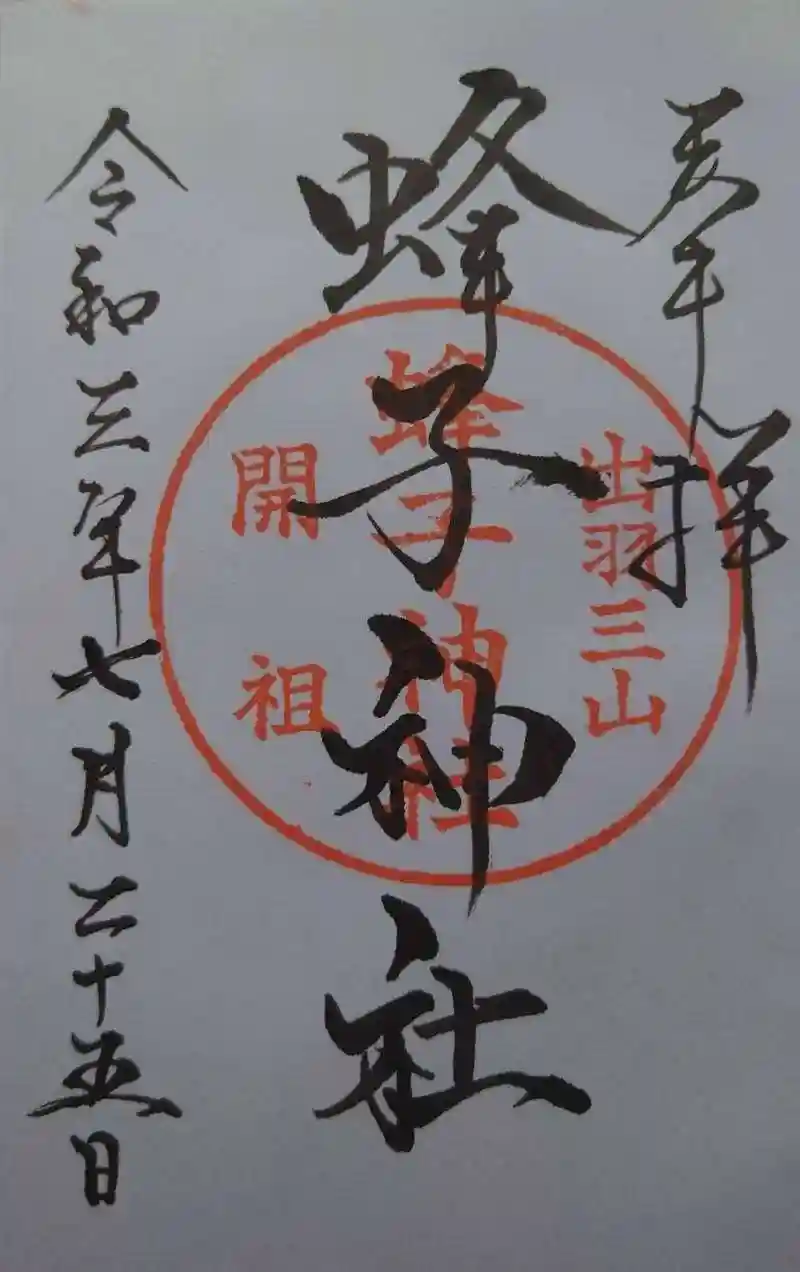 奉拝
出羽三山
蜂子神社
蜂子神社
開祖
令和三年七月二十五日